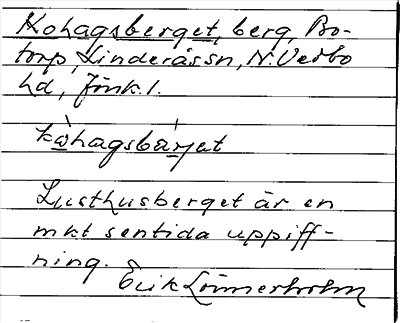 Kohagsberget, berg, Bo-
torp, Linderås sn, N. Vedbo
hd, Jönk. l.
kωhagsbäryet
Lusthusberget är en
mkt sentida uppiff-
ning.
Erik Lönnerholm